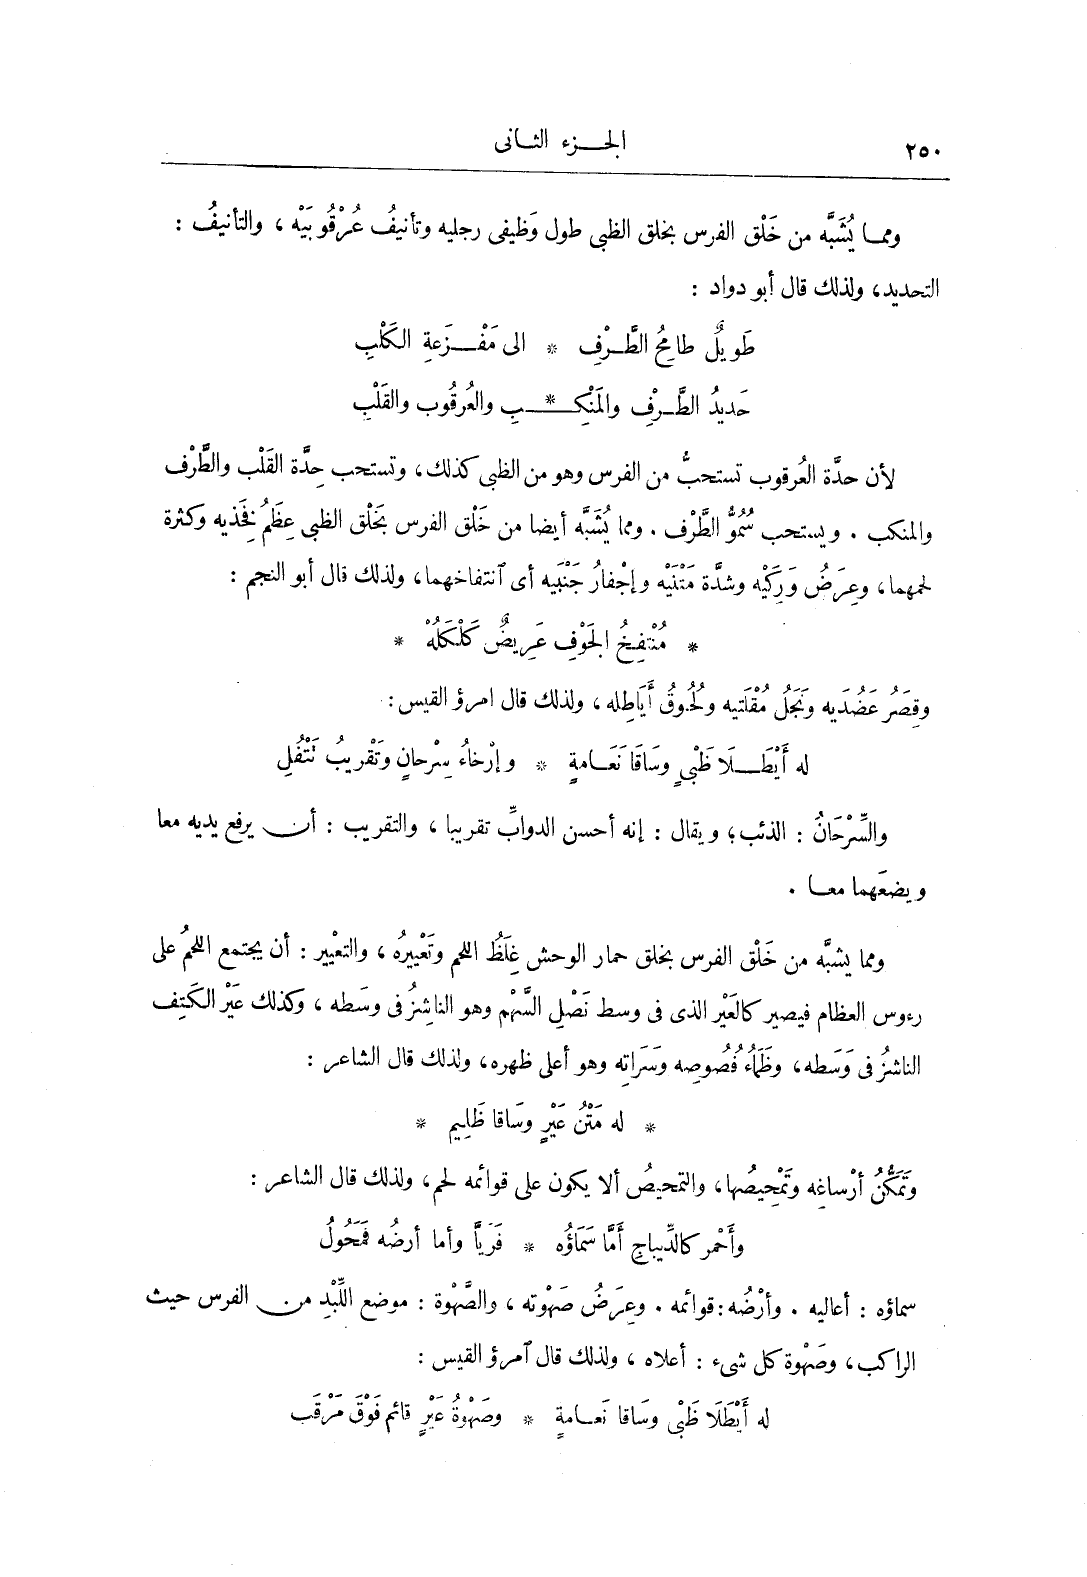 ٢٥٠
الجـزء الثـانى
ومما يُشَبَّه من خَلْق الفرس بخلق الظبى طول وَظيفى رجليه وتأنيفُ عُرْقُوبَيْه ، والتأنيفُ :
التحديد، ولذلك قال أبو دواد :
طَويلٌ طامِحُ الطَّـرْفِ * الى مَفْـزَعةِ الكَلْبِ
حَديدُ الطَّـرْفِ والمَنْكِـ * ـبِ والعُرقُوب والقَلْبِ
لأن حدَّة العُرقوب تستحبُّ من الفرس وهو من الظبى كذلك، وتستحب حِدَّة القَلْب والطَّرْف
والمنكب . ويستحب سُمُوُّ الطَّرْف . ومما يُشَبَّه أيضا من خَلْق الفرس بَخَلْق الظبى عِظَمُ فَخَذيه وكثرة
لحمهما، وعِرَضُ وَرِكَيْه وشدَّة مَتْنَيْه وإجْفارُ جَنْبَيه أى آنتفاخهما، ولذلك قال أبو النجم :
* مُنْتفِخُ الجَوْفِ عَريضٌ كَلْكَلُهْ *
وقِصَرُ عَضُدَيه ونَجَلُ مُقْلَتيه ولُحُوقُ أَيَاطِله ، ولذلك قال امرؤ القيس :
له أَيْطَـلَا ظَبْىٍ وسَاقَا نَعَـامةٍ * وإرْخاءُ سِرْحانٍ وتَقْريبُ تَتْفُلِ
والسِّرْحَانُ : الذئب؛ ويقال : إنه أحسن الدوابِّ تقريبا ، والتقريب : أن يرفع يديه معا
ويضعَهما معـا .
ومما يشبَّه من خَلْق الفرس بخلق حمار الوحش غِلَظُ اللحم وتَعْييرُه ، والتعْيير : أن يجتمع اللحمُ على
رءوس العظام فيصير كالعَيْر الذى فى وسط نَصْلِ السَّهْم وهو الناشِزُ فى وسَطه ، وكذلك عَيْر الكَتِف
الناشزُ فى وَسَطه، وظَمَاءُ فُصُوصِه وسَرَاتِه وهو أعلى ظهره، ولذلك قال الشاعر :
* له مَتْنُ عَيْرٍ وسَاقا ظَلِيم *
وتَمَكُّنُ أرْساغِه وتَمْحِيصُها، والتمحيصُ ألا يكون على قوائمه لحم، ولذلك قال الشاعر :
وأَحْمر كالدِّيباجِ أَمَّا سَمَاؤُه * فَرَيَّا وأما أرضُه فمَحُولُ
سماؤه : أعاليه . وأرْضُه : قوائمه . وعِرَضُ صَهْوته ، والصَّهْوة : موضع اللِّبْدِ من الفرس حيث
الراكب، وصَهْوة كل شىء : أعلاه ، ولذلك قال آمرؤ القيس :
له أَيْطَلَا ظَبْىٍ وسَاقا نَعـامةٍ * وصَهْوةُ عَيْرٍ قائمٍ فَوْقَ مَرْقَب